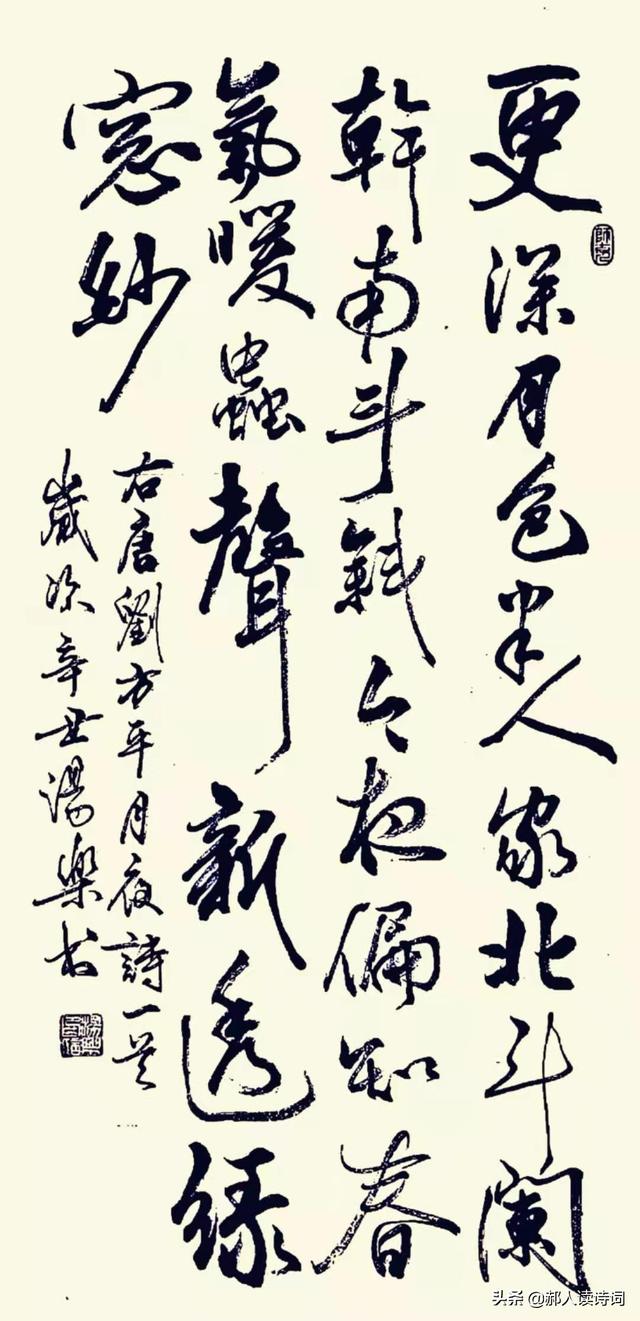 更深月色半人家北斗闌
幹南斗斜今夜偏知春
氣暖蟲聲新透綠
窓紗
右唐劉方平月夜詩一首
歲次辛丑湯樂書
头条 @郝人读诗词